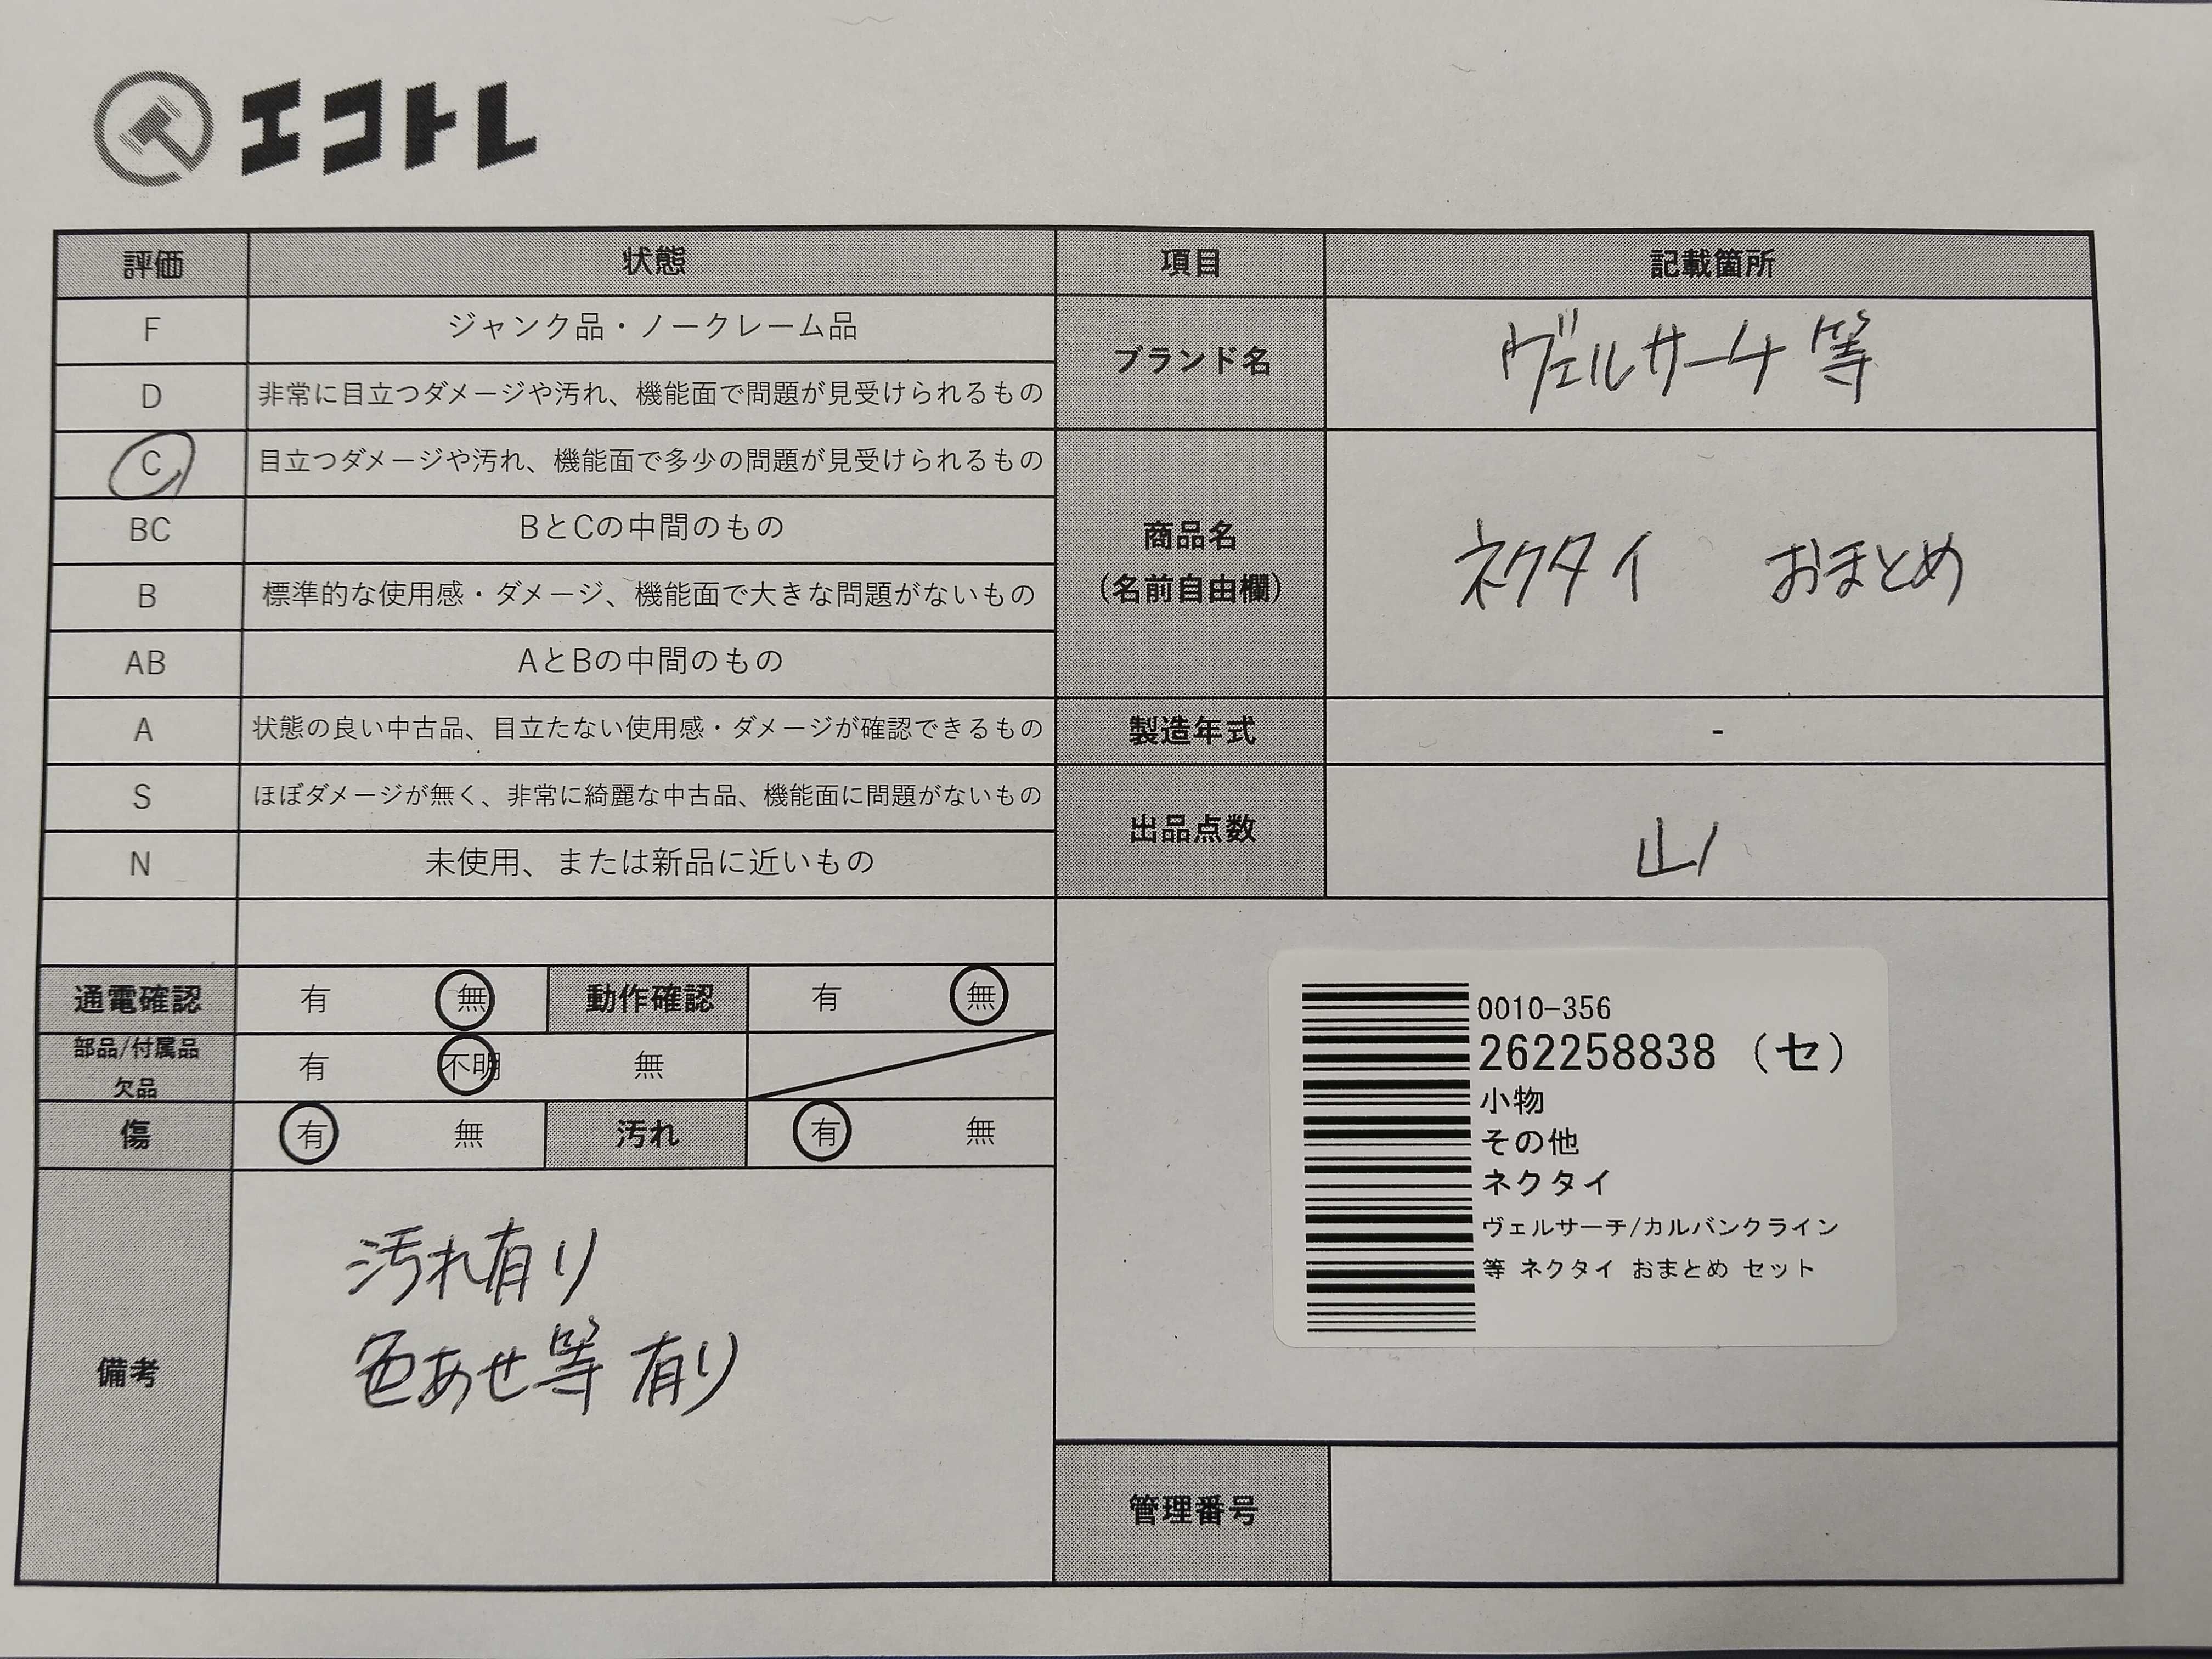 エコトレ
評価 状態 項目 記載箇所
F ジャンク品・ノークレーム品
ブランド名 ヴェルサーチ 等
D 非常に目立つダメージや汚れ、機能面で問題が見受けられるもの
C 目立つダメージや汚れ、機能面で多少の問題が見受けられるもの
BC BとCの中間のもの
商品名
(名前自由欄)
ネクタイ おまとめ
B 標準的な使用感・ダメージ、機能面で大きな問題がないもの
AB AとBの中間のもの
A 状態の良い中古品、目立たない使用感・ダメージが確認できるもの
製造年式 -
S ほぼダメージが無く、非常に綺麗な中古品、機能面に問題がないもの
出品点数 山1
N 未使用、または新品に近いもの
通電確認 有 無 動作確認 有 無
部品/付属品
欠品
有 不明 無
傷 有 無 汚れ 有 無
備考
汚れ有り
色あせ等 有り
0010-356
262258838 (セ)
小物
その他
ネクタイ
ヴェルサーチ/カルバンクライン
等 ネクタイ おまとめ セット
管理番号